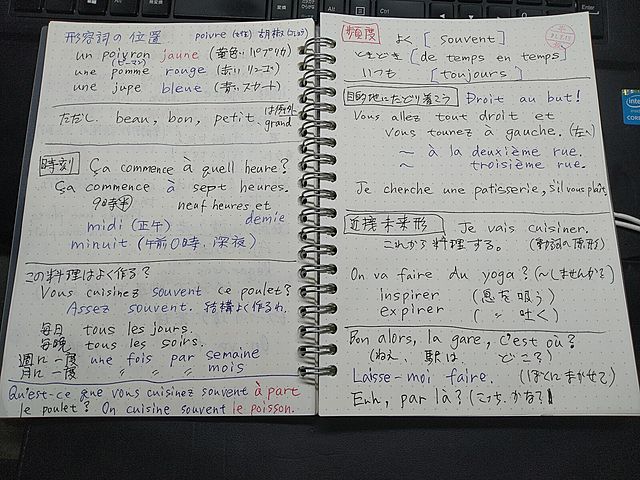 形容詞の位置 poivre (女性) 胡椒 (コショウ)
un poivron jaune (黄色いパプリカ)
(ピーマン)
une pomme rouge (赤いリンゴ)
une jupe bleue (青いスカート)
ただし beau, bon, petit, grand は例外
時刻 Ça commence à quell heure?
Ça commence à sept heures.
9時半 neuf heures et demie
midi (正午)
minuit (午前0時、深夜)
この料理はよく作る?
Vous cuisinez souvent ce poulet?
Assez souvent. 結構よく作るわ
毎日 tous les jours.
毎晩 tous les soirs.
週に一度 une fois par semaine
月に一度 〃 〃 〃 mois
Qu'est-ce que vous cuisinez souvent à part
le poulet? On cuisine souvent le poisson.
頻度 よく [souvent]
ときどき [de temps en temps]
いつも [toujours]
目的地にたどり着こう Droit au but!
Vous allez tout droit et
vous tounez à gauche. (左へ)
~ à la deuxième rue.
~ troisième rue.
Je cherche une patisserie, s'il vous plaît.
近接未来形 Je vais cuisiner.
これから料理する。 (動詞の原形)
On va faire du yoga? (~しませんか?)
inspirer (息を吸う)
expirer (〃 吐く)
Bon alors, la gare, c'est où?
(ねえ、駅は どころ)
Laisse-moi faire. (ぼくにまかせて)
Euh, par là? (こっちかな?)
intel
CORE